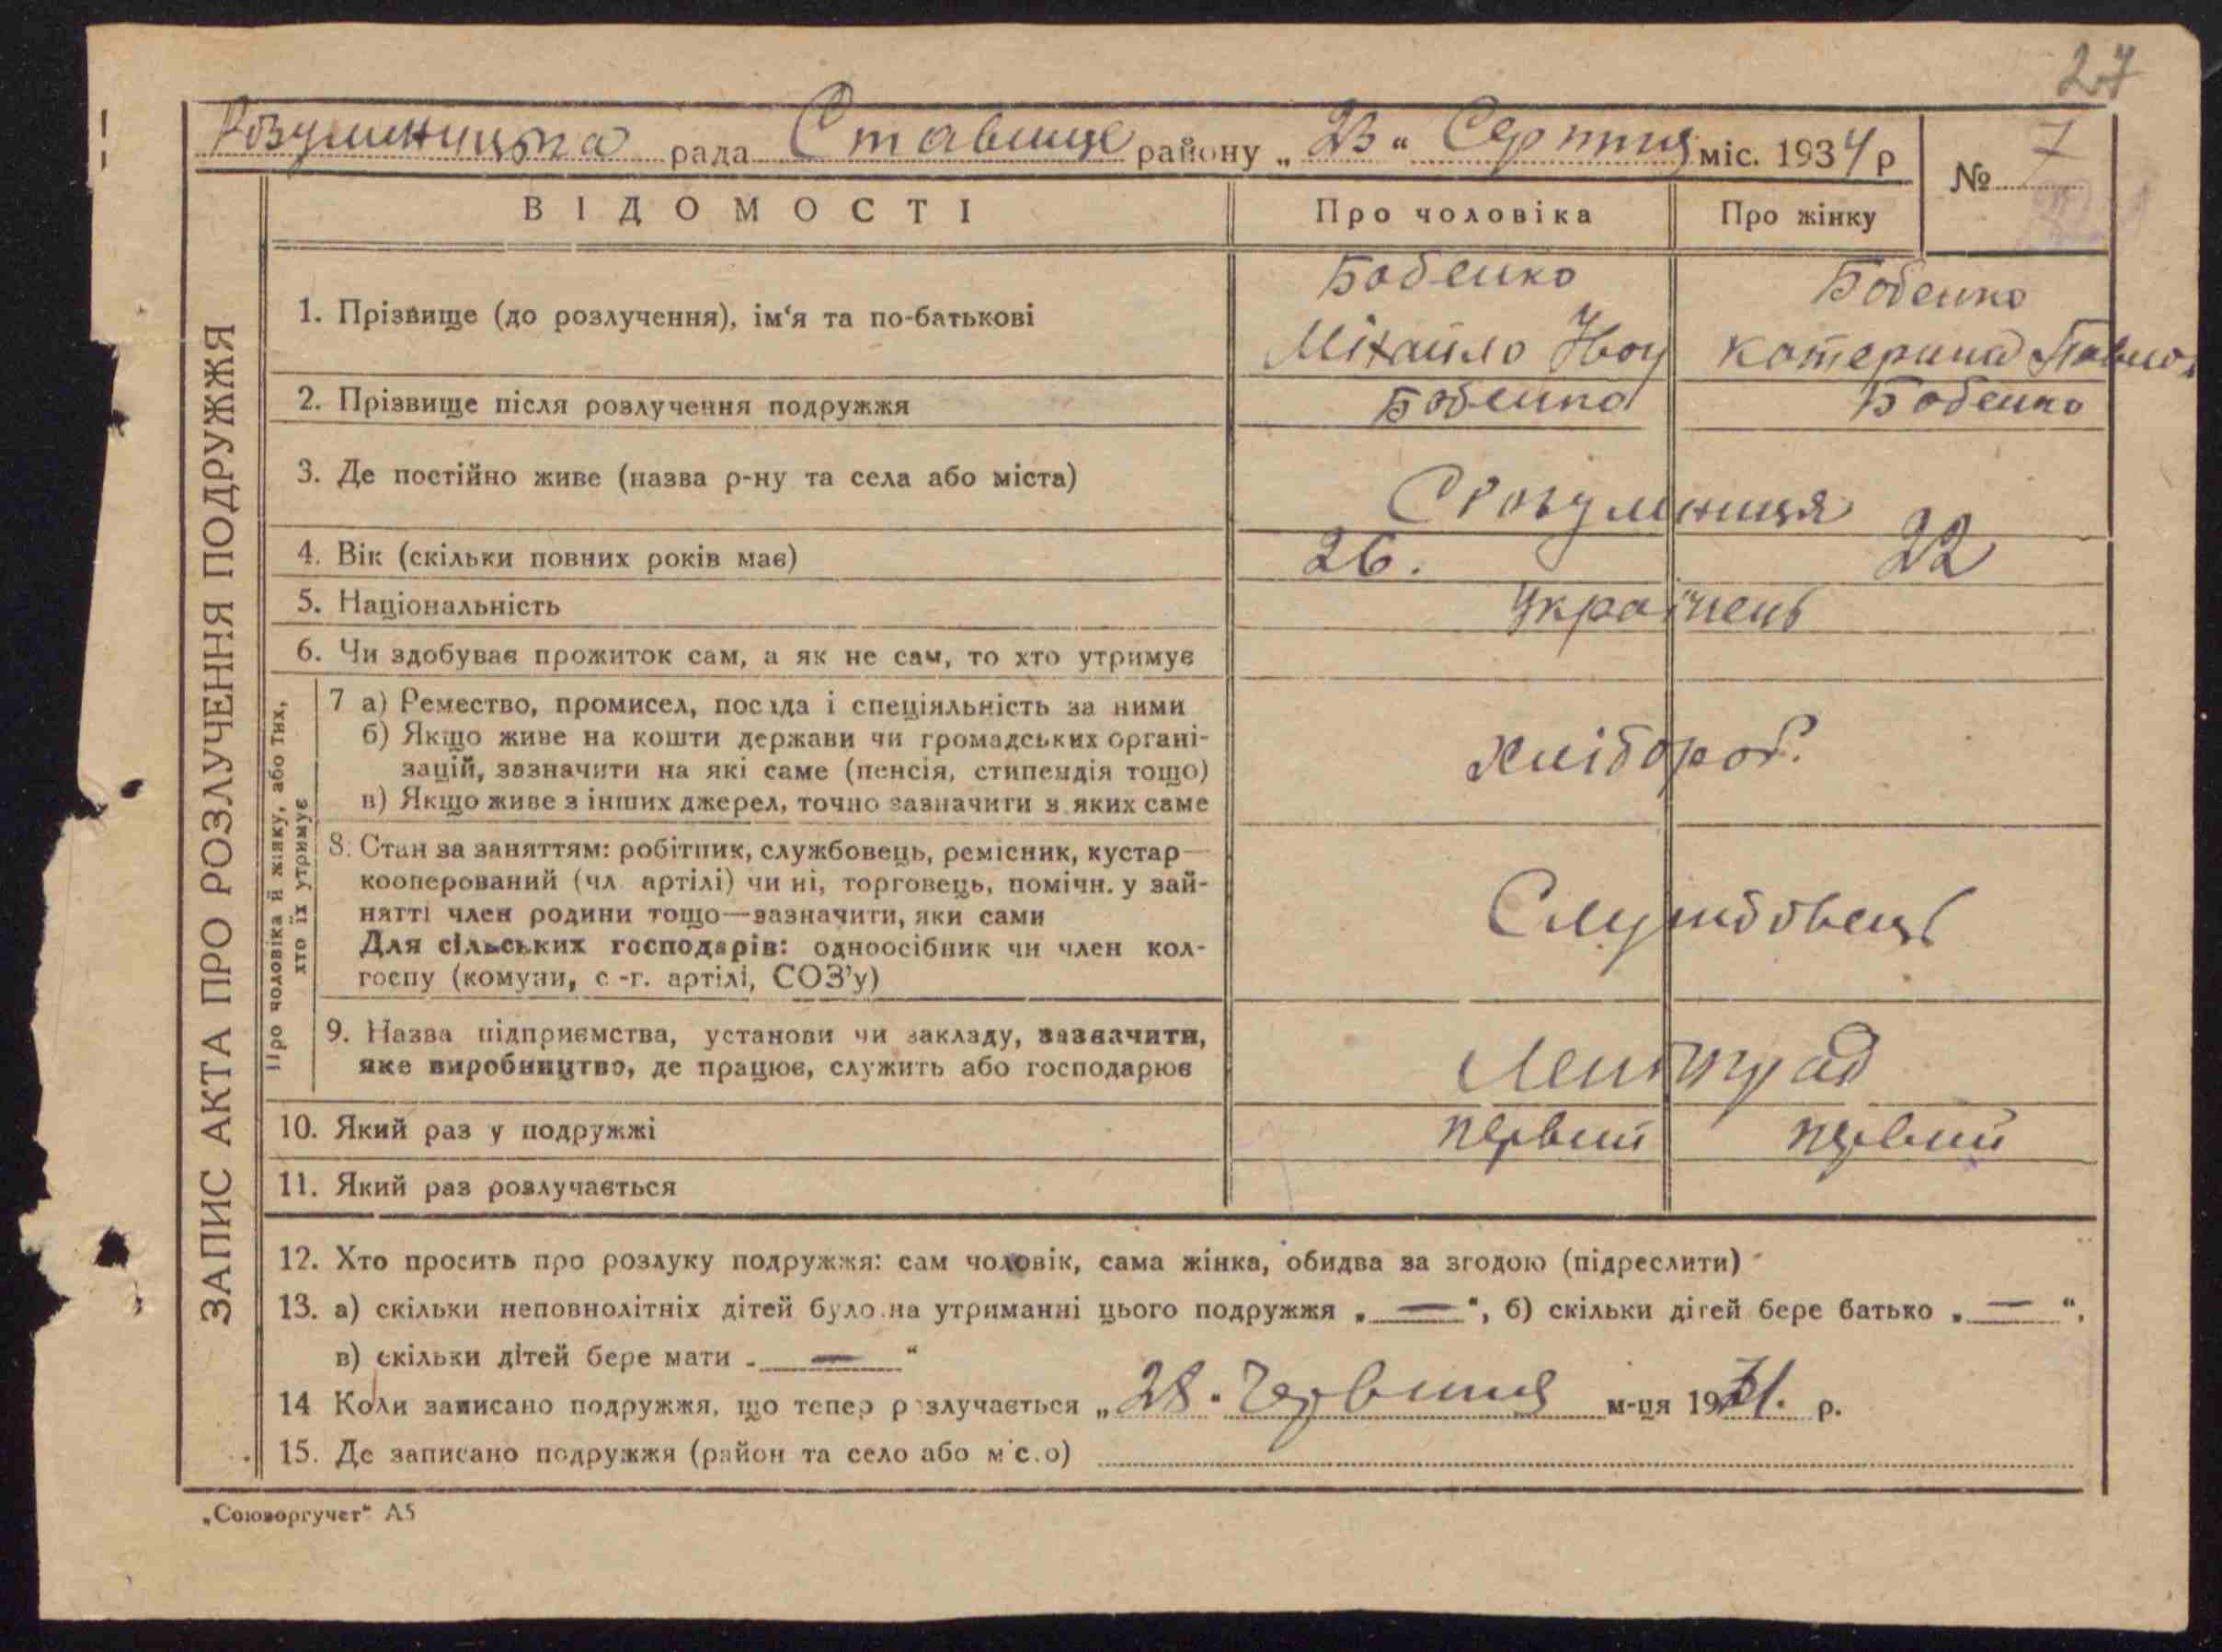 27
Розумницька рада Ставище району „23“ Серпня міс. 1934 р
№ 7
ВІДОМОСТІ
Про чоловіка
Про жінку
ЗАПИС АКТА ПРО РОЗЛУЧЕННЯ ПОДРУЖЖЯ
1. Прізвище (до розлучення), ім‘я та по-батькові
Бабенко
Міхайло
Бабенко
Катерина
2. Прізвище після розлучення подружжя
Бабенко
Бабенко
3. Де постійно живе (назва р-ну та села або міста)
С Розумниця
4. Вік (скільки повних років має)
26.
22
5. Національність
Українець
6. Чи здобуває прожиток сам, а як не сам, то хто утримує
Про чоловіка й жінку, або тих,
хто їх утримує
7 а) Ремество, промисел, посада і спеціяльність за ними
б) Якщо живе на кошти держави чи громадських органі-
зацій, зазначити на які саме (пенсія, стипендія тощо)
в) Якщо живе з інших джерел, точно зазначити з яких саме
хлібороб.
8. Стан за заняттям: робітник, службовець, ремісник, кустар—
кооперований (чл. артілі) чи ні, торговець, помічн. у зай-
нятті член родини тощо—зазначити, яки сами
Для сільських господарів: одноосібник чи член кол-
госпу (комуни, с.-г. артілі, СОЗ’у)
Службовець
9. Назва підприємства, установи чи закладу, зазначити,
яке виробництво, де працює, служить або господарює
Ленінград
10. Який раз у подружжі
первий
первий
11. Який раз розлучається
12. Хто просить про розлуку подружжя: сам чоловік, сама жінка, обидва за згодою (підреслити)
13. а) скільки неповнолітніх дітей було на утриманні цього подружжя „—“, б) скільки дітей бере батько „—“,
в) скільки дітей бере мати „—“
14 Коли записано подружжя, що тепер розлучається „28“ Червння м-ця 1931. р.
15. Де записано подружжя (район та село або місто)
„Союзоргучет“ А5